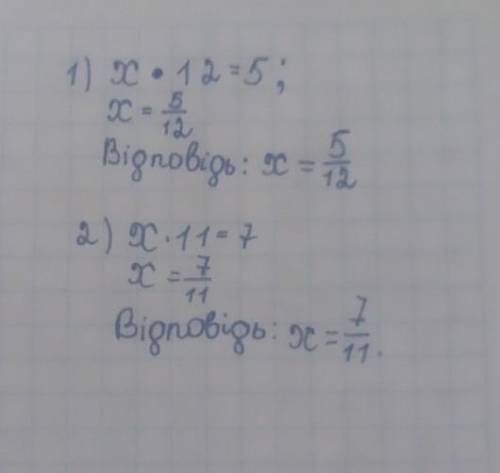 1) x • 12 = 5;
x = 5/12
Відповідь: x = 5/12
2) x · 11 = 7
x = 7/11
Відповідь: x = 7/11.